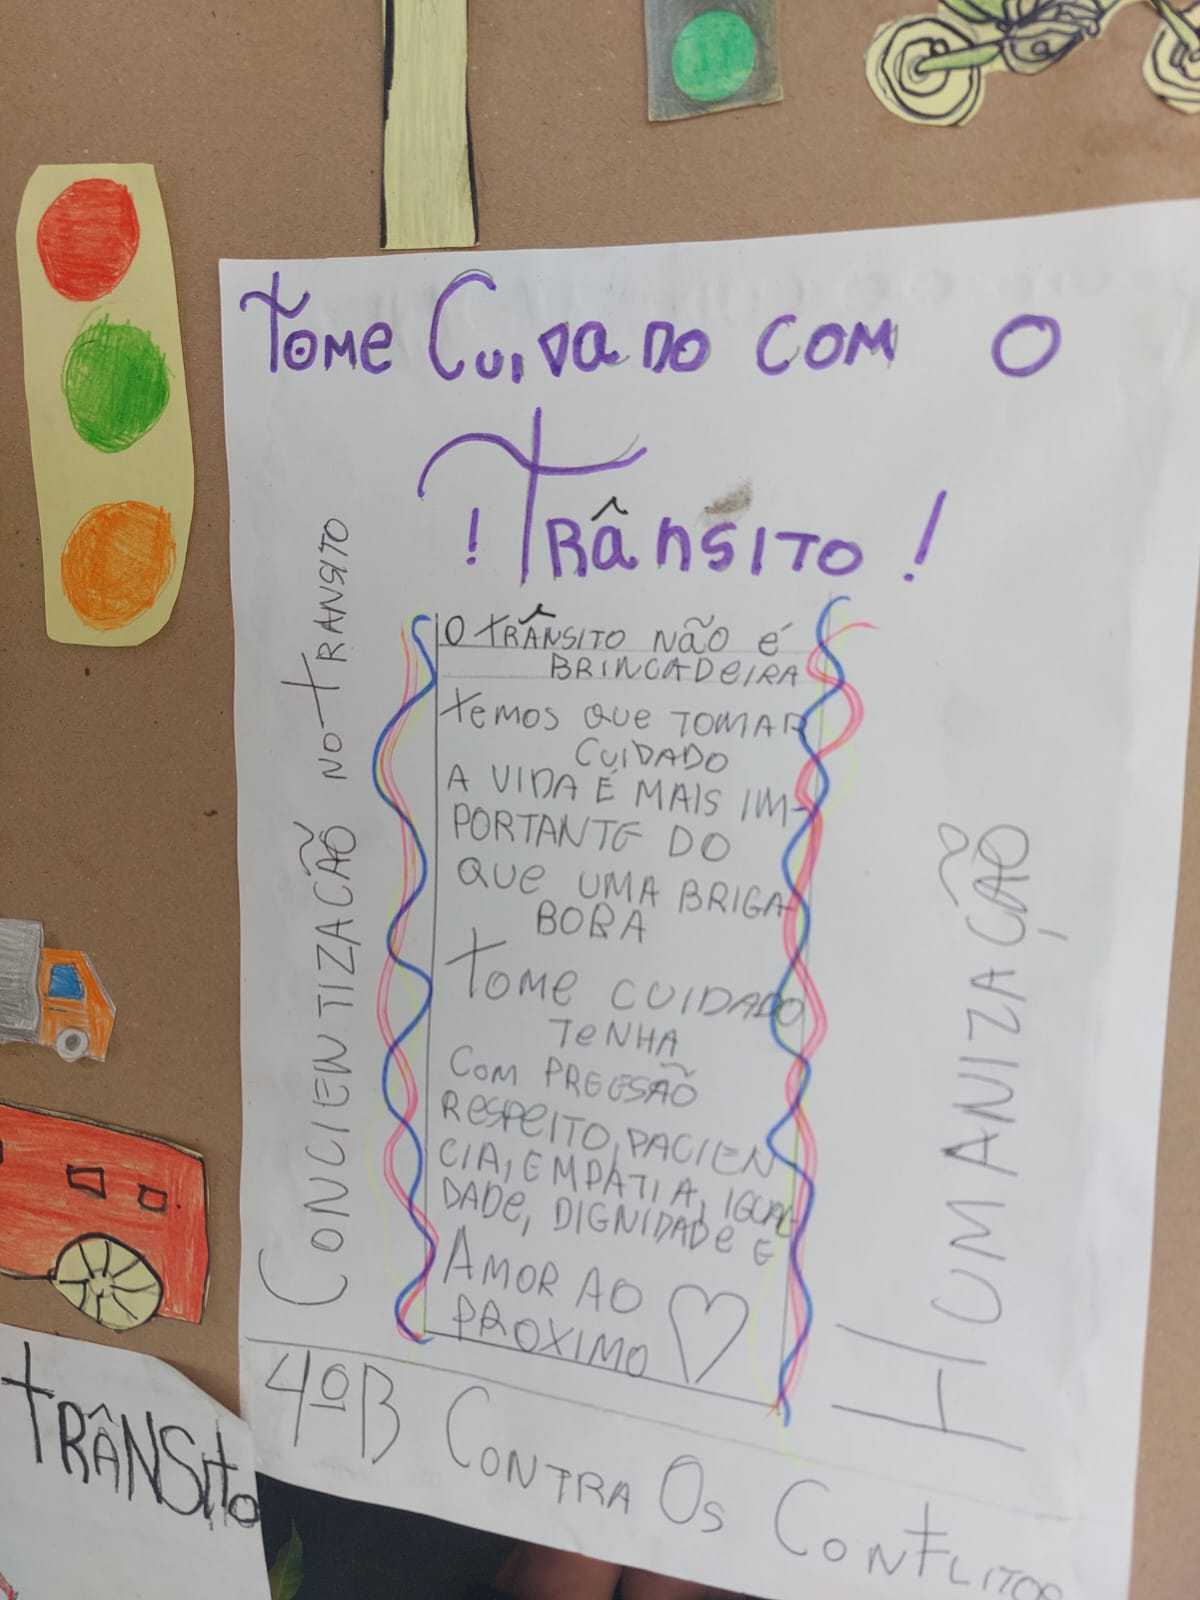 Tome Cuidado com o
! Trânsito !
O trânsito não é
brincadeira
temos que tomar
cuidado
a vida é mais im-
portante do
que uma briga
boba
Tome cuidado
tenha
compreesão
respeito, pacien
cia, empatia, igual
dade, dignidade e
Amor ao
proximo
Concientizacão no transito
Humanização
4ºB Contra Os Conflitos
trânsito